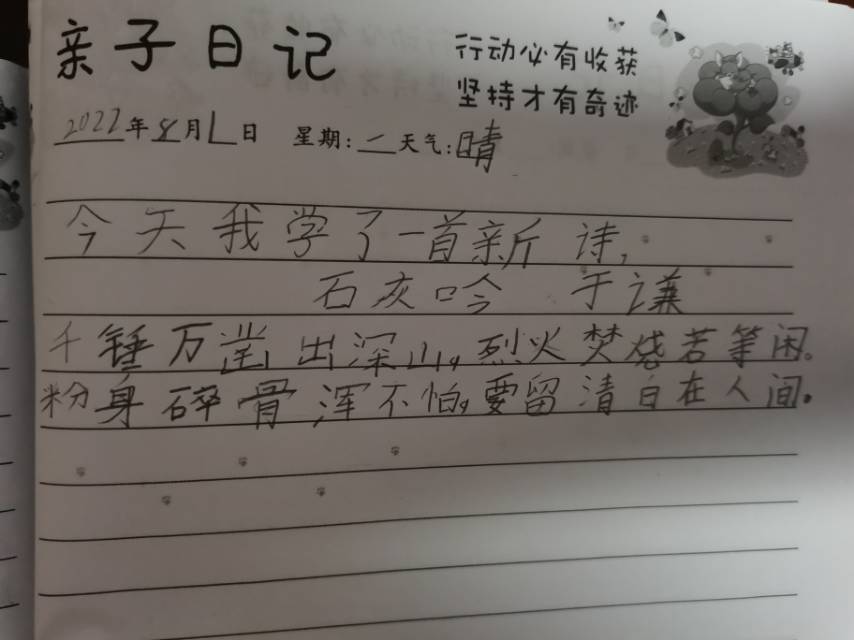 亲子日记
行动必有收获
坚持才有奇迹
2022年8月1日 星期:一 天气:晴
今天我学了一首新诗,
石灰吟 于谦
千锤万凿出深山,烈火焚烧若等闲。
粉身碎骨浑不怕,要留清白在人间。